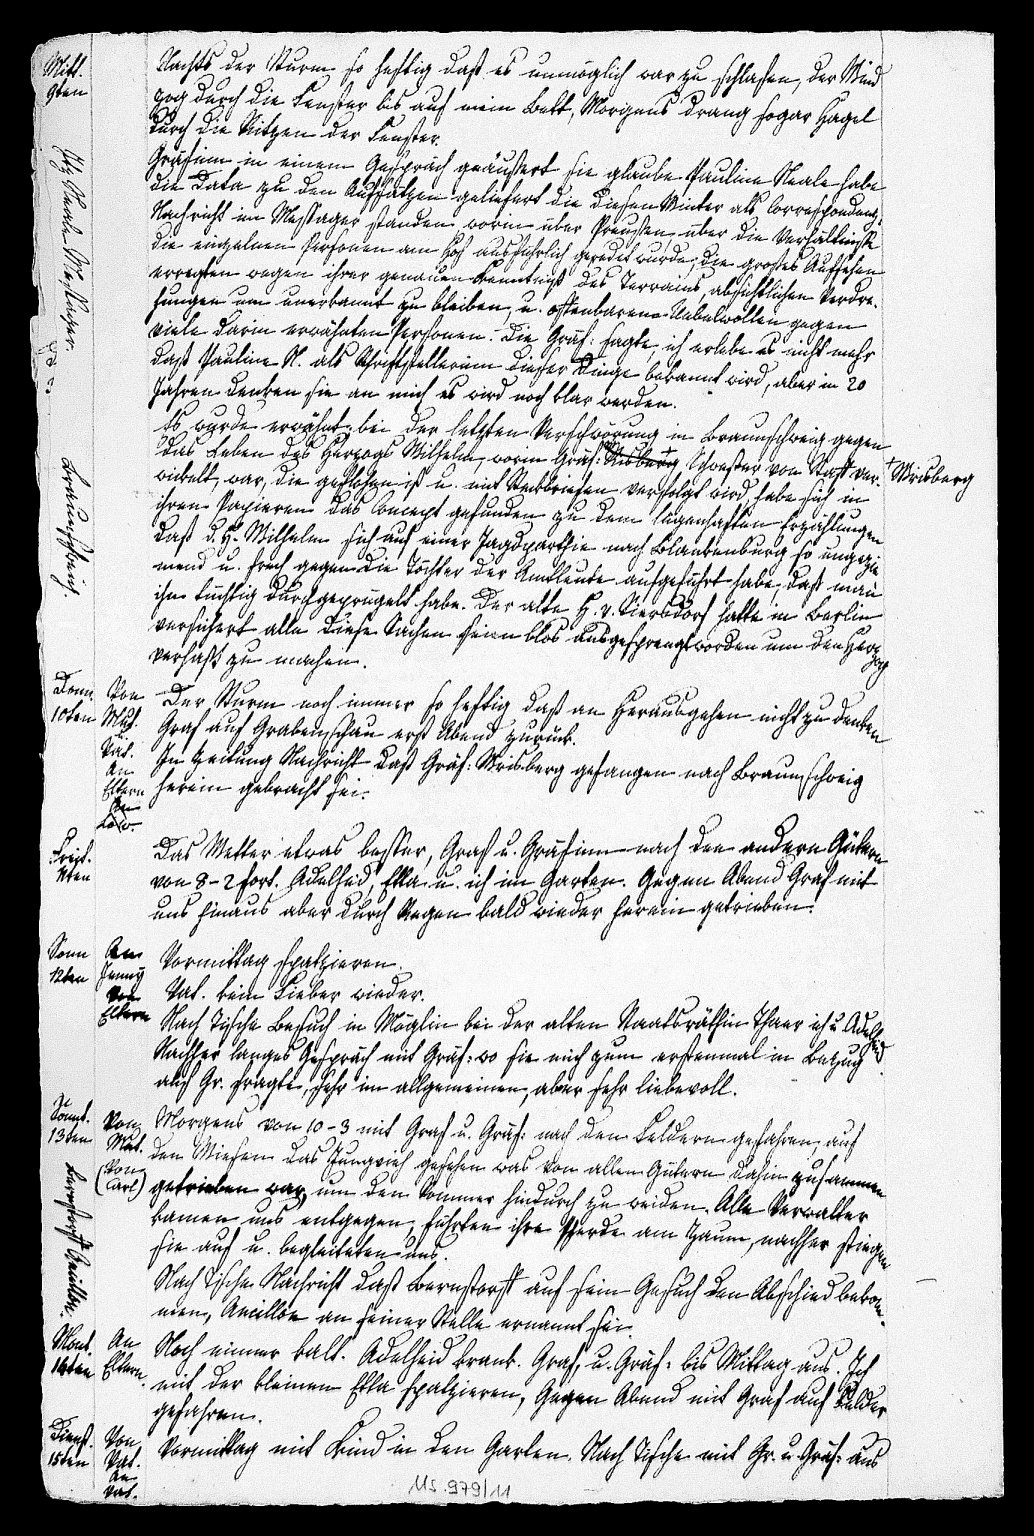 Mitt.
9ten
Nachts der Sturm so heftig daß es unmöglich war zu schlafen, der Wind
zog durch die Fenster bis auf mein Bett, Morgens drang sogar Hagel
durch die Ritzen der Fenster.
Gräfinn in einem Gespräch geäußert sie glaube Pauline Neale habe
die Data zu den Aufsätzen geliefert die diesen Winter als Correspondenz,
Nachricht im Messager standen worin über Preußen, über die Verhältniße
die einzelnen Personen am Hof ausführlich geredet wurde, die großes Aufsehen
erregten wegen ihrer genauen Kenntniß des Terrains, absichtlichen Verdre-
hungen um unerkannt zu bleiben, u. offenbaren Uebelwollen gegen
viele darin erwähnten Personen. Die Gräf: sagte, ich erlebe es nicht mehr
daß Pauline N. als Schriftstellerinn dieser Dinge bekannt wird, aber in 20
Jahren denken sie an mich es wird noch klar werden.
Es wurde erwähnt bei der letzten Verschwörung in Braunschweig gegen
das Leben des Herzogs Wilhelm, worin Gräf: Schwester von Staff ver- + Wrisberg
wickelt, war, die geflohen ist u. mit Steckbriefen verfolgt wird, habe sich in
ihren Papieren das Concept gefunden zu dem lügenhaften Erzählungen
daß d. H. Wilhelm sich auf einer Jagdparthie nach Blankenburg so ungezie
mend u. frech gegen die Töchter der Amtleute aufgeführt habe, daß man
ihn tüchtig durchgeprügelt habe. Der alte H. v. Siersdorf hatte in Berlin
versichert alle diese Sachen seien blos ausgesprengt worden um den Herzog
verhaßt zu machen.
Braunschweig.
Donn.
10ten
Von
Mut.
Vat.
An
Eltern
Der Sturm noch immer so heftig daß an Herausgehen nicht zu denken
Graf auf Grabenschau erst Abend zurück.
In Zeitung Nachricht daß Gräf: Wrisberg gefangen nach Braunschweig
herein gebracht sei.
Freit.
11ten
Das Wetter etwas besser, Graf u. Gräfinn nach den andern Gütern
von 8-2 fort. Adelheid, Ella u. ich im Garten. Gegen Abend Graf mit
uns hinaus aber durch Regen bald wieder herein getrieben.
Sonn
12ten
An
Jenny
Von
Eltern
Vormittag spatzieren.
Vat. kein Fieber wieder.
Nach Tische Besuch in Möglin bei der alten Staatsräthin Thaer ich u Adelheid.
Nachher langes Gespräch mit Gräf: wo sie mich zum erstenmal in Bezug
auf Gr. fragte, sehr im allgemeinen, aber sehr liebevoll.
Sonnt.
13ten
Von
Mut.
(Von
Carl)
Morgens von 10-3 mit Graf u. Gräf: nach den Feldern gefahren, auf
den Wiesen das Jungvieh gesehen was von allen Gütern dahin zusammen
getrieben war, um den Sommer hindurch zu weiden. Alle Verwalter
kamen uns entgegen, führten ihre Pferde am Zaum, nachher stiegen
sie auf u. begleiteten uns.
Nach Tische Nachricht daß Bernstorff auf sein Gesuch den Abschied bekom-
men, Ancillon an seiner Stelle ernannt sei.
Bernstorff Ancillon
Mont.
14ten
An
Eltern.
Noch immer kalt. Adelheid krank. Graf u. Gräf: bis Mittag aus. Ich
mit der kleinen Ella spatzieren, Gegen Abend mit Graf auf Felder
gefahren.
Dienst.
15ten
Von
Vat.
An
Vat.
Vormittag mit Kind in den Garten. Nach Tische mit Gr. u Gräf: aus
MS. 979/11